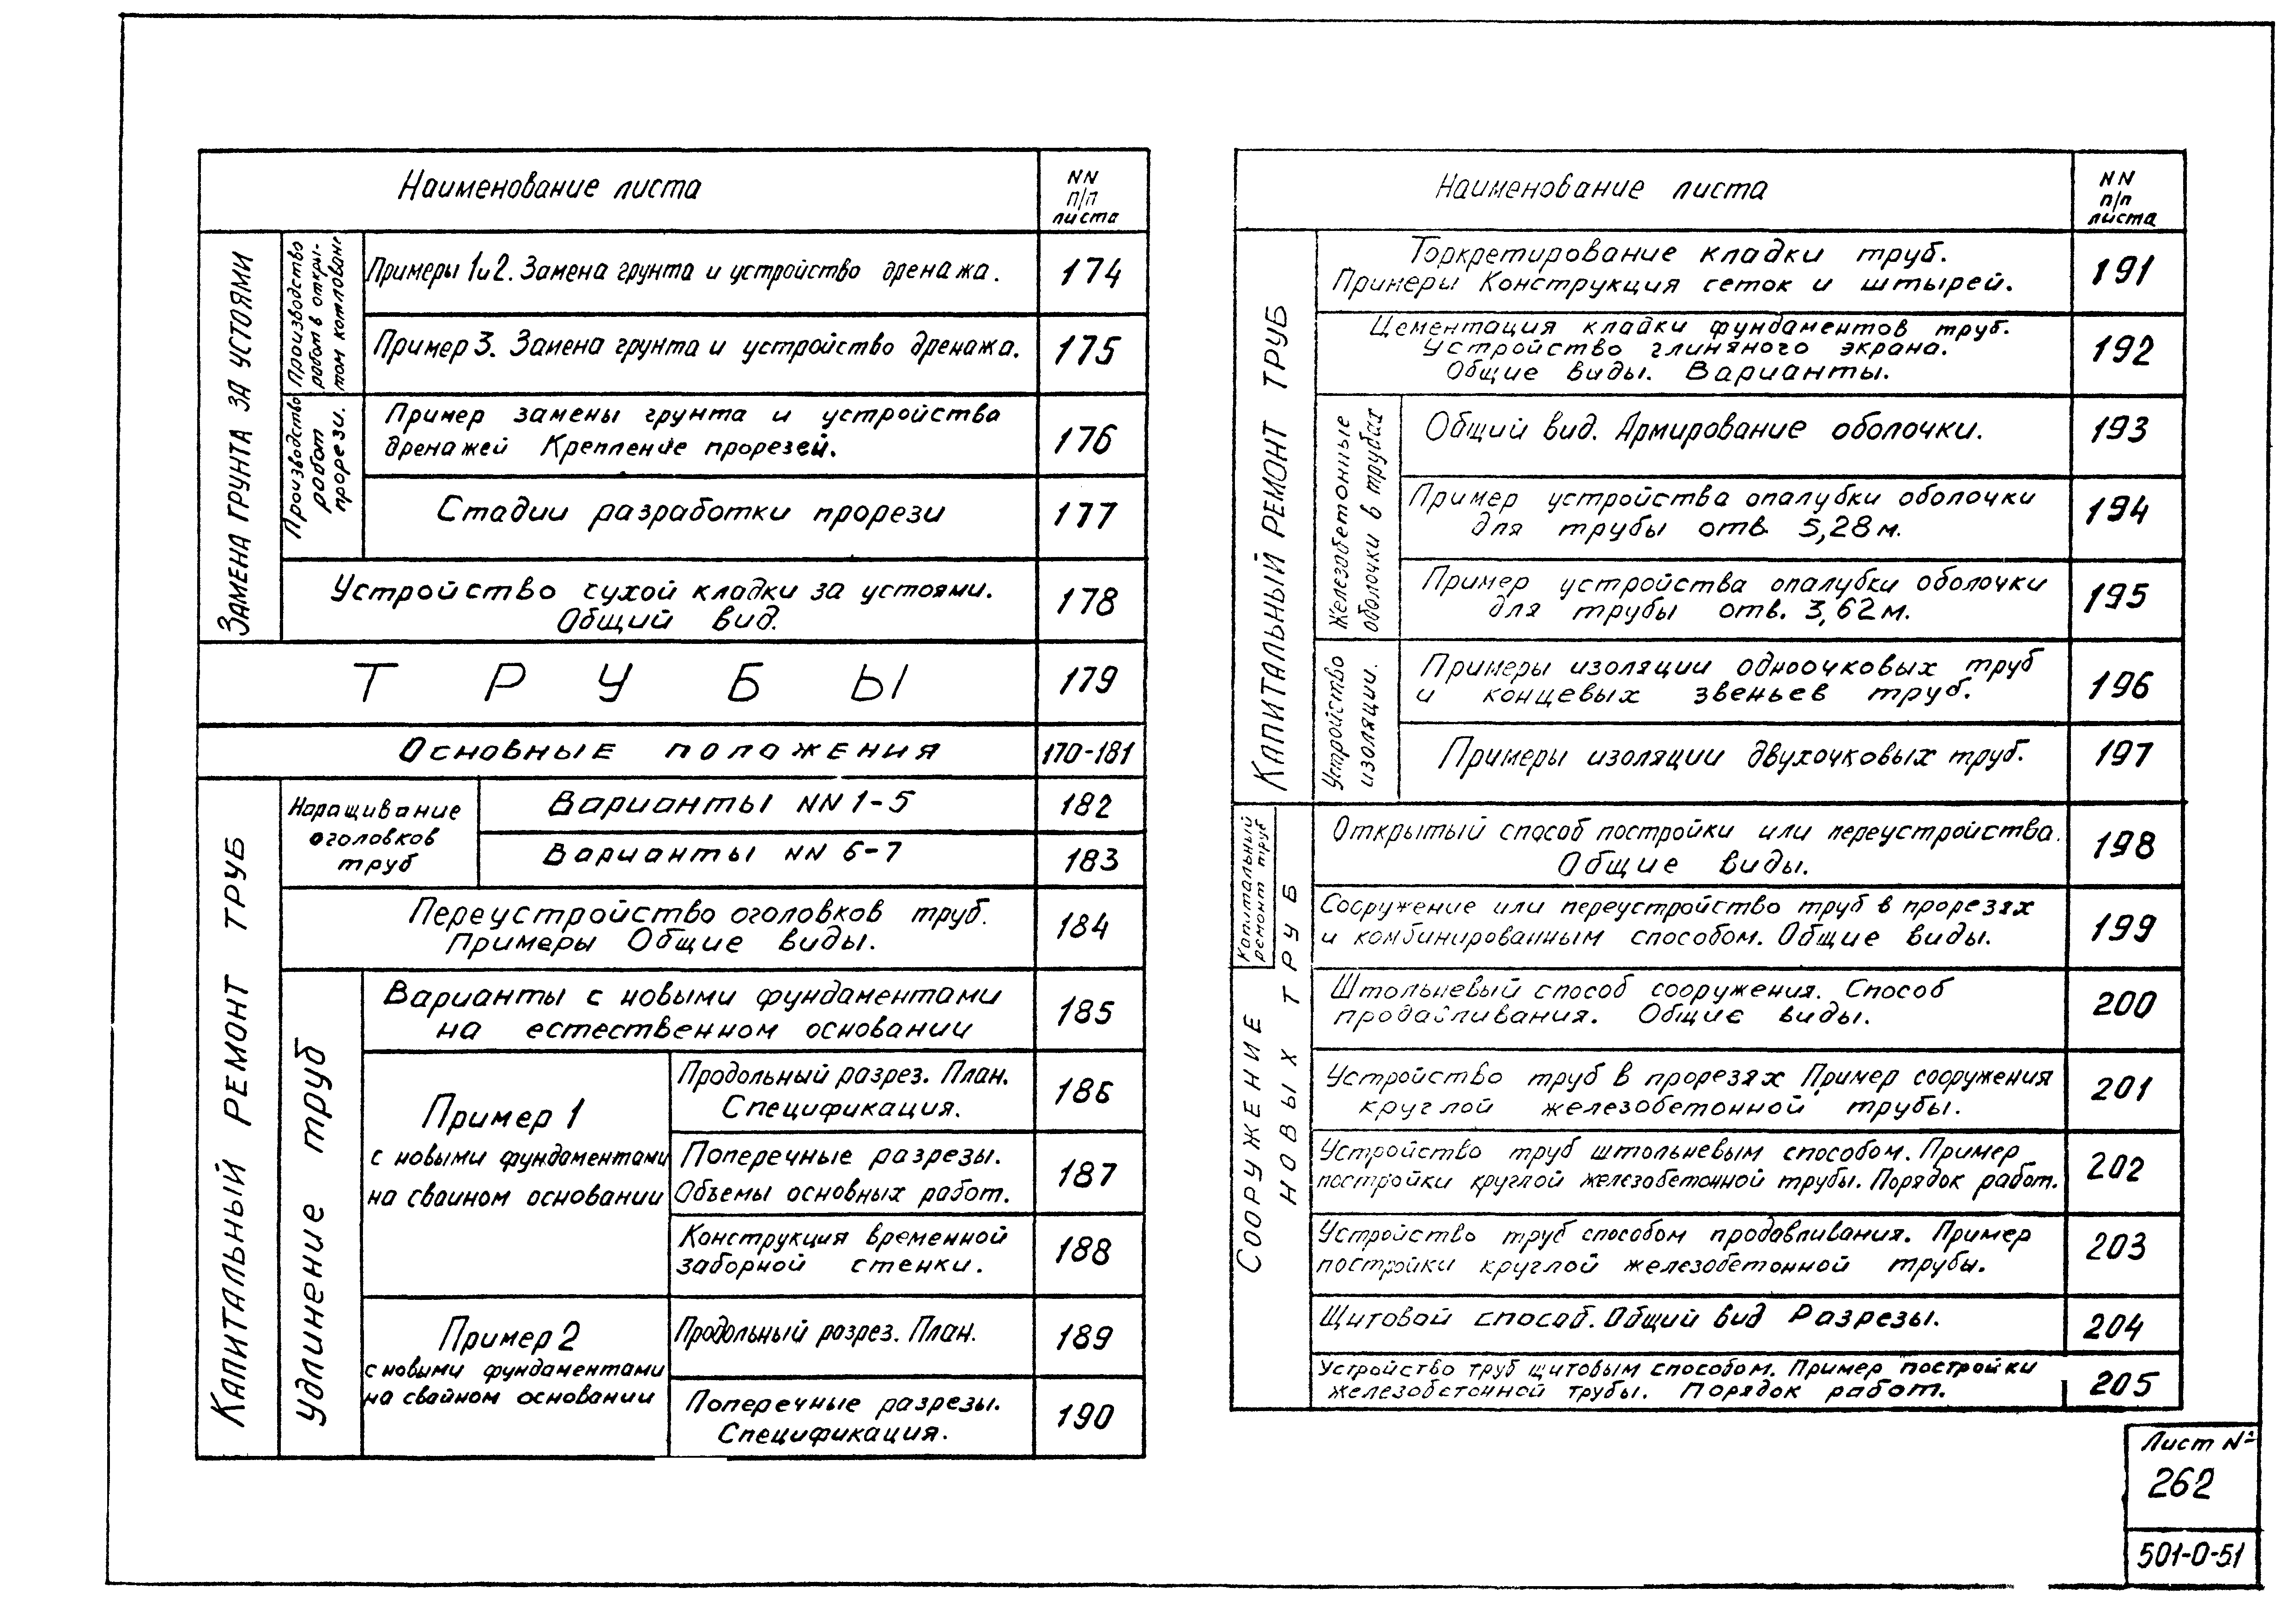 Наименование листа
NN
п/п
листа
ЗАМЕНА ГРУНТА ЗА УСТОЯМИ
Производство
работ в откры-
том котловане
Примеры 1и2. Замена грунта и устройство дренажа.
174
Пример 3. Замена грунта и устройство дренажа.
175
Производство
работ
прорези.
Пример замены грунта и устройства
дренажей Крепление прорезей.
176
Стадии разработки прорези
177
Устройство сухой кладки за устоями.
Общий вид.
178
ТРУБЫ
179
Основные положения
170-181
КАПИТАЛЬНЫЙ РЕМОНТ ТРУБ
Наращивание
оголовков
труб
Варианты NN 1-5
182
Варианты NN 6-7
183
Переустройство оголовков труб.
Примеры Общие виды.
184
Удлинение труб
Варианты с новыми фундаментами
на естественном основании
185
Пример 1
с новыми фундаментами
на сваином основании
Продольный разрез. План.
Спецификация.
186
Поперечные разрезы.
Объемы основных работ.
187
Конструкция временной
заборной стенки.
188
Пример 2
с новыми фундаментами
на свайном основании
Продольный разрез. План.
189
Поперечные разрезы.
Спецификация.
190
Наименование листа
NN
п/п
листа
КАПИТАЛЬНЫЙ РЕМОНТ ТРУБ
Торкретирование кладки труб.
Примеры Конструкция сеток и штырей.
191
Цементация кладки фундаментов труб.
Устройство глиняного экрана.
Общие виды. Варианты.
192
Железобетонные
оболочки в трубах
Общий вид. Армирование оболочки.
193
Пример устройства опалубки оболочки
для трубы отв. 5,28 м.
194
Пример устройства опалубки оболочки
для трубы отв. 3,62 м.
195
Устройство
изоляции.
Примеры изоляции одноочковых труб
и концевых звеньев труб.
196
Примеры изоляции двухочковых труб.
197
Капитальный
ремонт труб
СООРУЖЕНИЕ
НОВЫХ ТРУБ
Открытый способ постройки или переустройства.
Общие виды.
198
Сооружение или переустройство труб в прорезях
и комбинированным способом. Общие виды.
199
Штольневый способ сооружения. Способ
продавливания. Общие виды.
200
Устройство труб в прорезях Пример сооружения
круглой железобетонной трубы.
201
Устройство труб штольневым способом. Пример
постройки круглой железобетонной трубы. Порядок работ.
202
Устройство труб способом продавливания. Пример
постройки круглой железобетонной трубы.
203
Щитовой способ. Общий вид Разрезы.
204
Устройство труб щитовым способом. Пример постройки
железобетонной трубы. Порядок работ.
205
Лист №
262
501-0-51